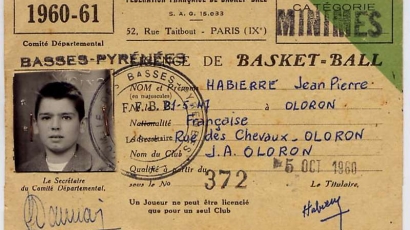 1960-61
FÉDÉRATION FRANÇAISE DE BASKET-BALL
S. A. G. 15.033
52, Rue Taitbout - PARIS (IXe)
CATÉGORIE
MINIMES
Comité Départemental
BASSES-PYRÉNÉES
DE BASKET-BALL
NOM et Prénom HABIERRE Jean Pierre
(en majuscules)
OLORON
Nationalité Française
Rue des Chevaux - OLORON
Nom du Club J.A. OLORON
Qualifié à partir du 5 OCT 1960
sous le No 372
Le Secrétaire
du Comité Départemental,
Le Titulaire,
Un Joueur ne peut être licencié
que pour un seul Club